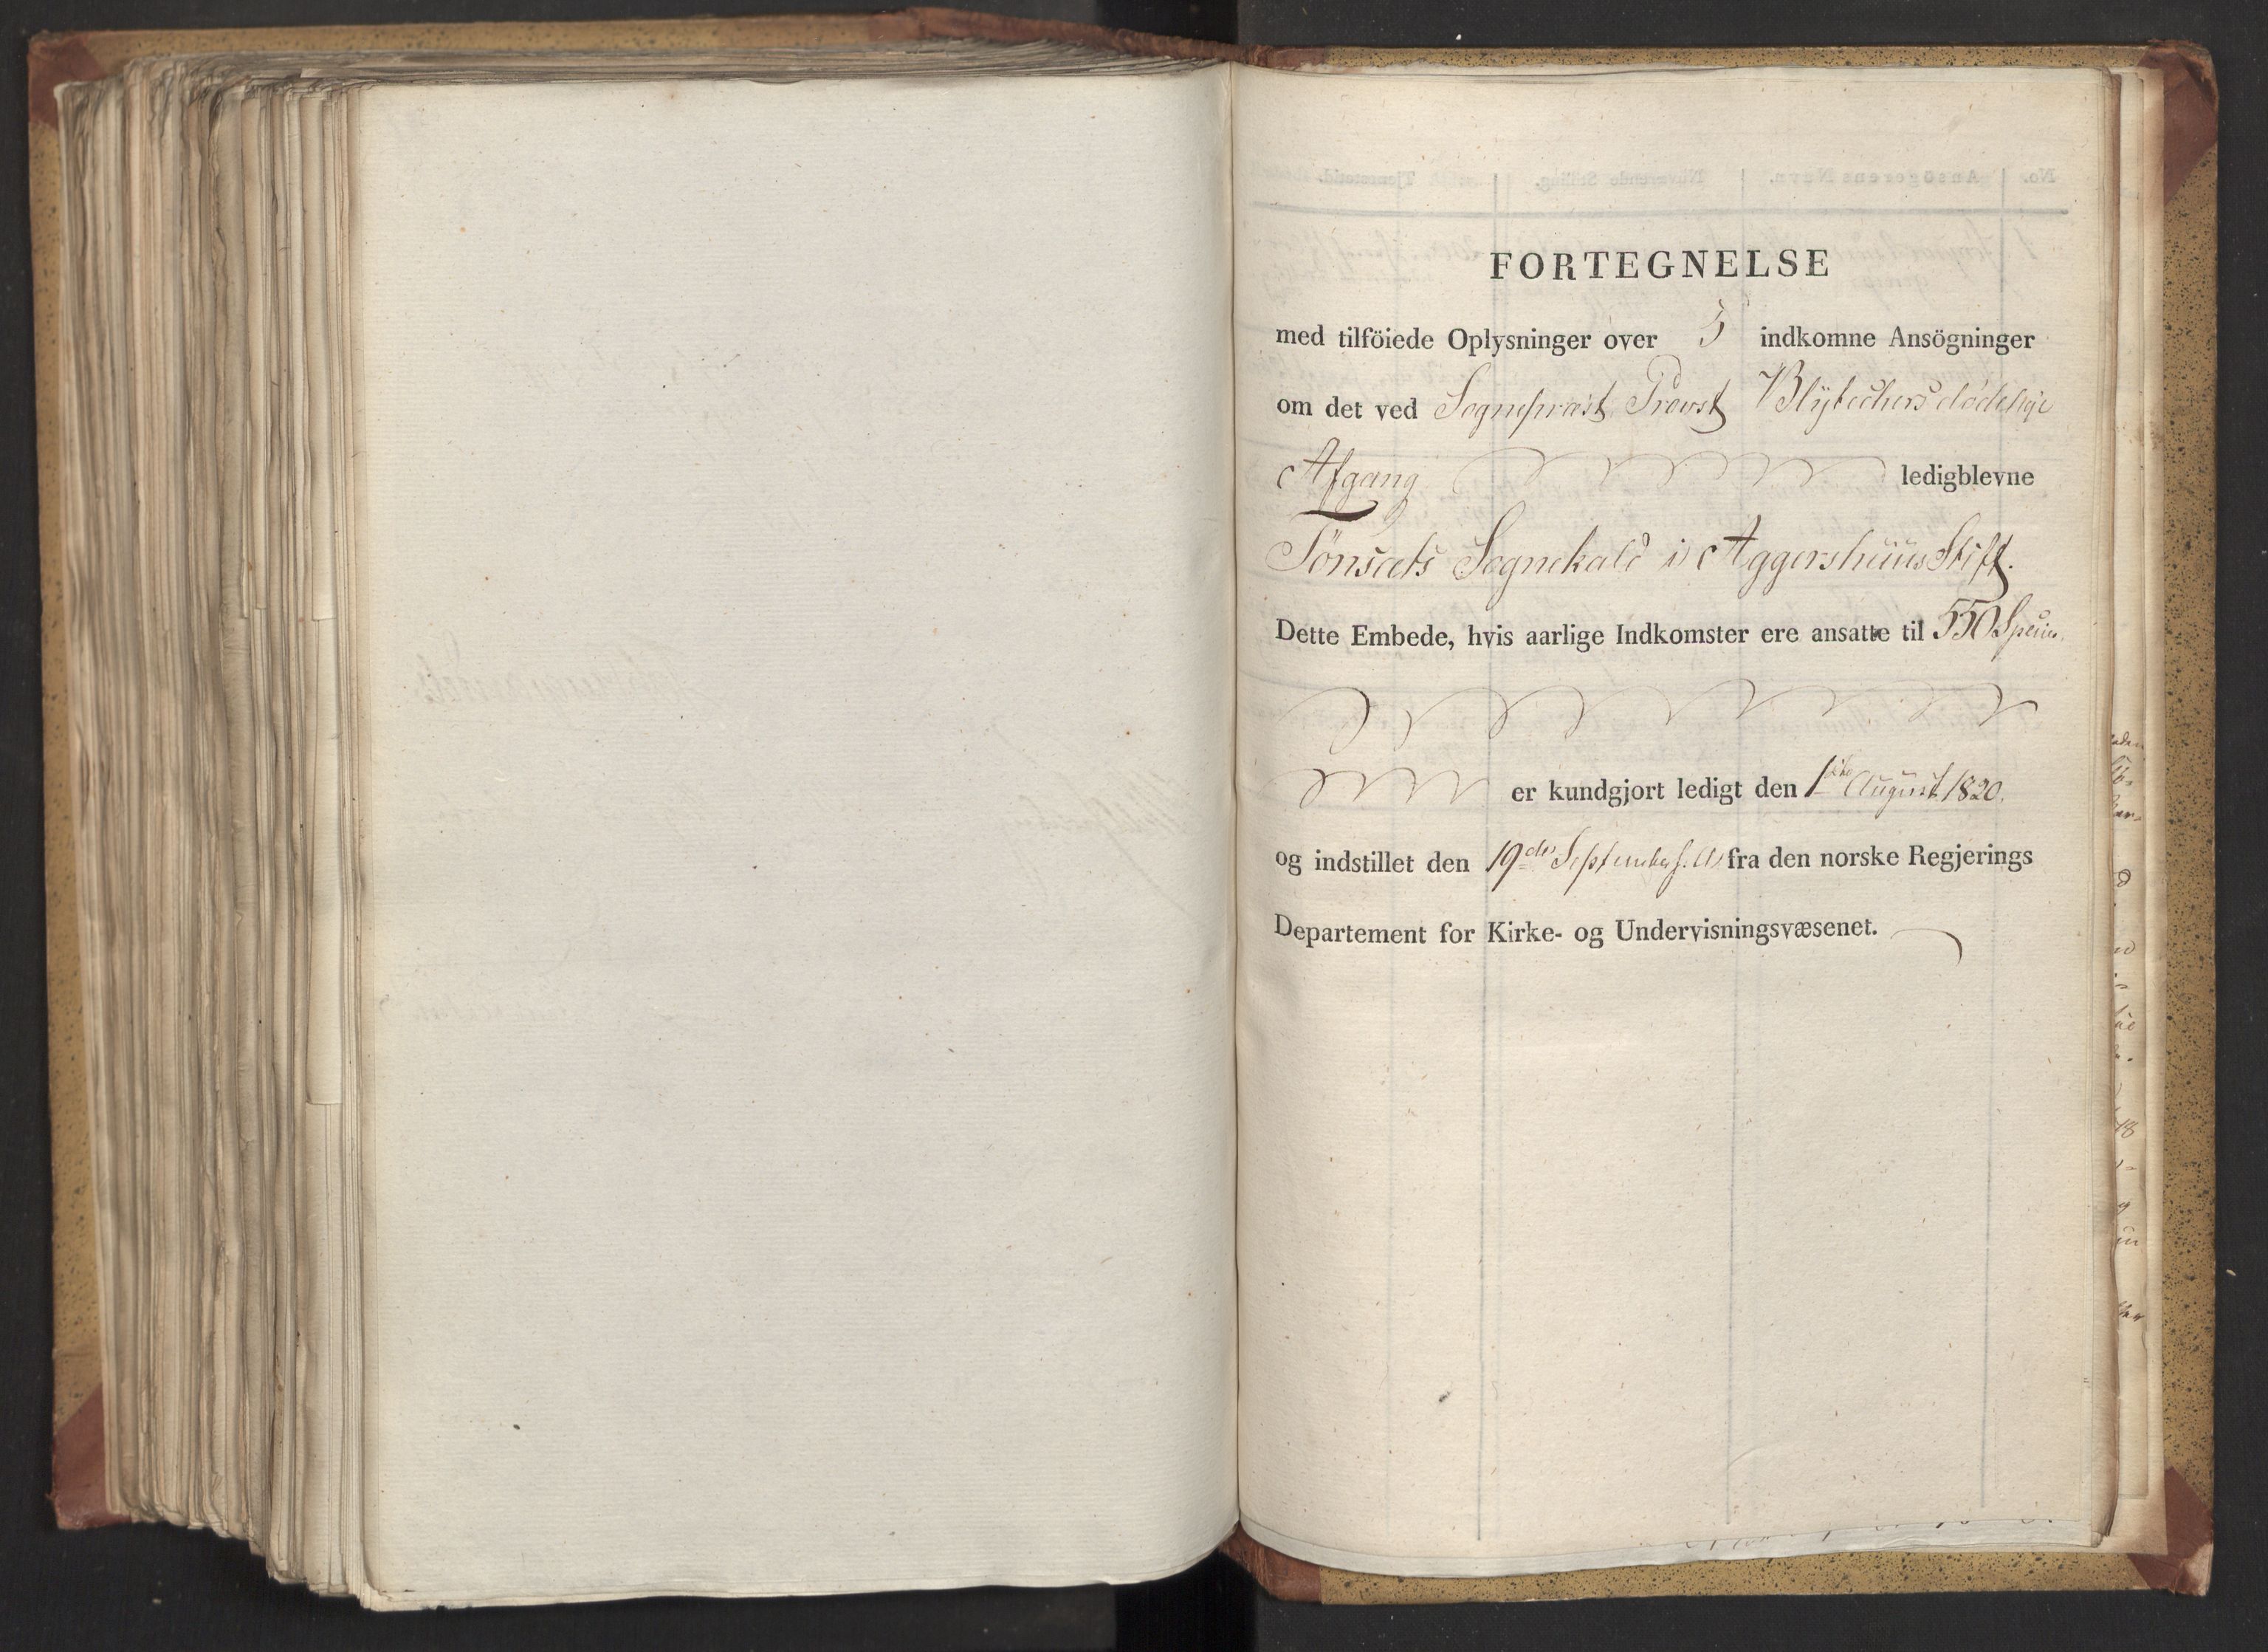 FORTEGNELSE
med tilföiede Oplysninger over 5 indkomne Ansögninger
om det ved Sognepræst Provst Blytechers dödelige
Afgang ledigblevne
Tönsæts Sognekald i Aggershuus Stift.
Dette Embede, hvis aarlige Indkomster ere ansatte til 550 Specier
er kundgjort ledigt den 1ste August 1820.
og indstillet den 19de September s. A. fra den norske Regjerings
Departement for Kirke- og Undervisningsvæsenet.